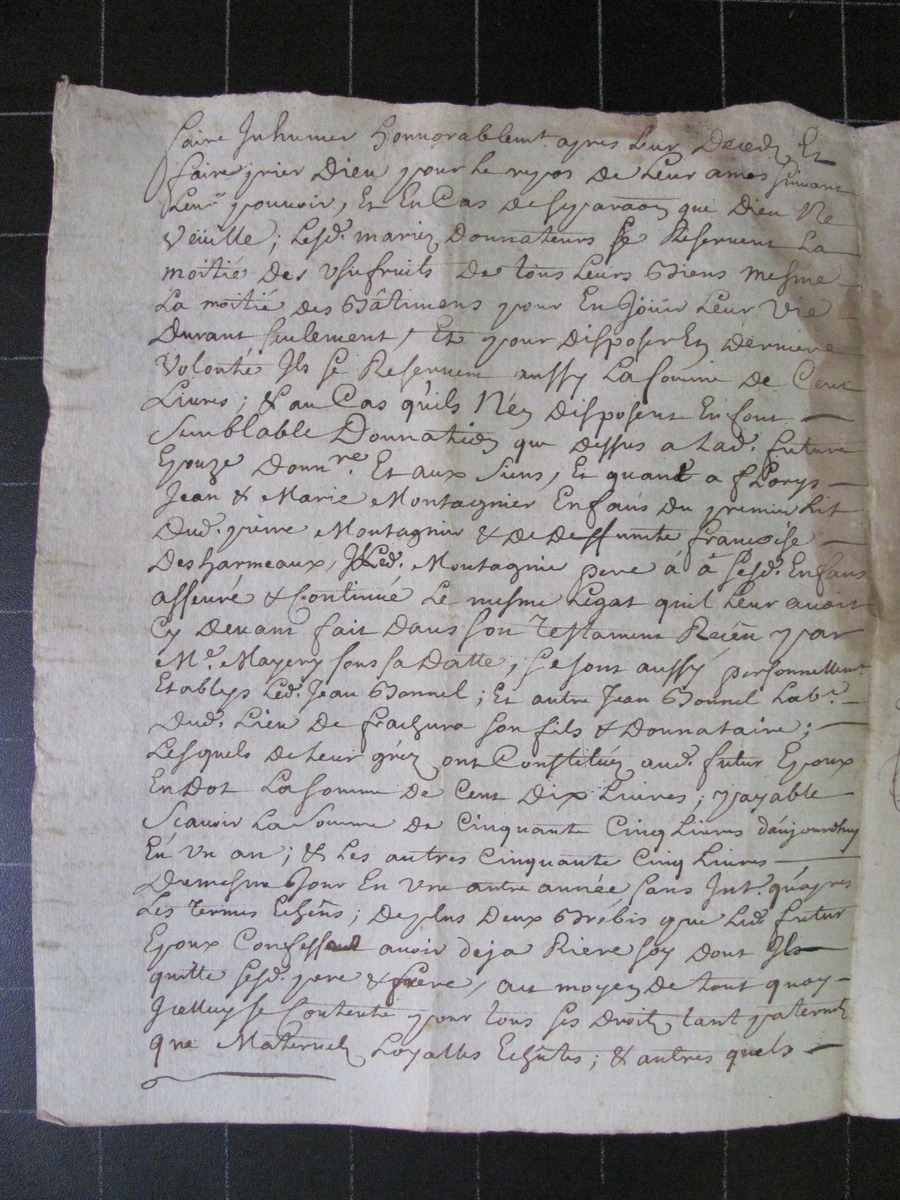 faire Inhumer honnorablemt. apres Leur Deced, Et
faire prier Dieu pour Le repos de Leur ames suivant
Leur pouvoir, Et En Cas de separaõn que Dieu Ne
Veüille; Lesd. mariez Donnateurs se Reservent La
moitié des Usufruits De tous Leurs Biens mesme
La moitié des Bâtimens pour En Joüir Leur Vie
Durant seulement, Et pour disposer En dernière
Volonté Ils se Reservent aussy La somme de Cent
Livres; & au Cas qu'ils N'en disposent En font
Semblable Donnation que dessus a Lad. future
Epouze donnre. Et aux Siens, Et quant a
Jean & Marie Montagnier Enfans Du premier Lit
Dud. pierre Montagnier & de Deffunte francoise
Desharmeaux, Led. Montagnier pere à à sesd. Enfans
asseuré & Continué Le mesme Legat quil Leur avoit
Cy devant fait dans son Testament Reçeu par
Me. Mayery sous sa datte, se sont aussy personnellemt.
Etablys Led. Jean Bonnel; Et autre Jean Bonnel Labr.
Dud. Lieu de frachura son fils & Donnataire;
Lesquels de Leur gréz ont Constitüéz aud. futur Epoux
En Dot La somme De Cent Dix Livres; payable
Scavoir La Somme de Cinquante Cinq Livres d'aujourdhuy
En un an; & Les autres Cinquante Cinq Livres
Du mesme Jour En une autre année sans Int. qu'apres
Les termes Echûs; de plus deux Brébis que Led. futur
Epoux Confesse avoir deja Rière soy dont Ils
quitte sesd. pere & frere, au moyen de tout quoy
Icelluy se Contente pour tous ses Droits tant paternels
que Maternels Loyalles Echûtes; & autres quels